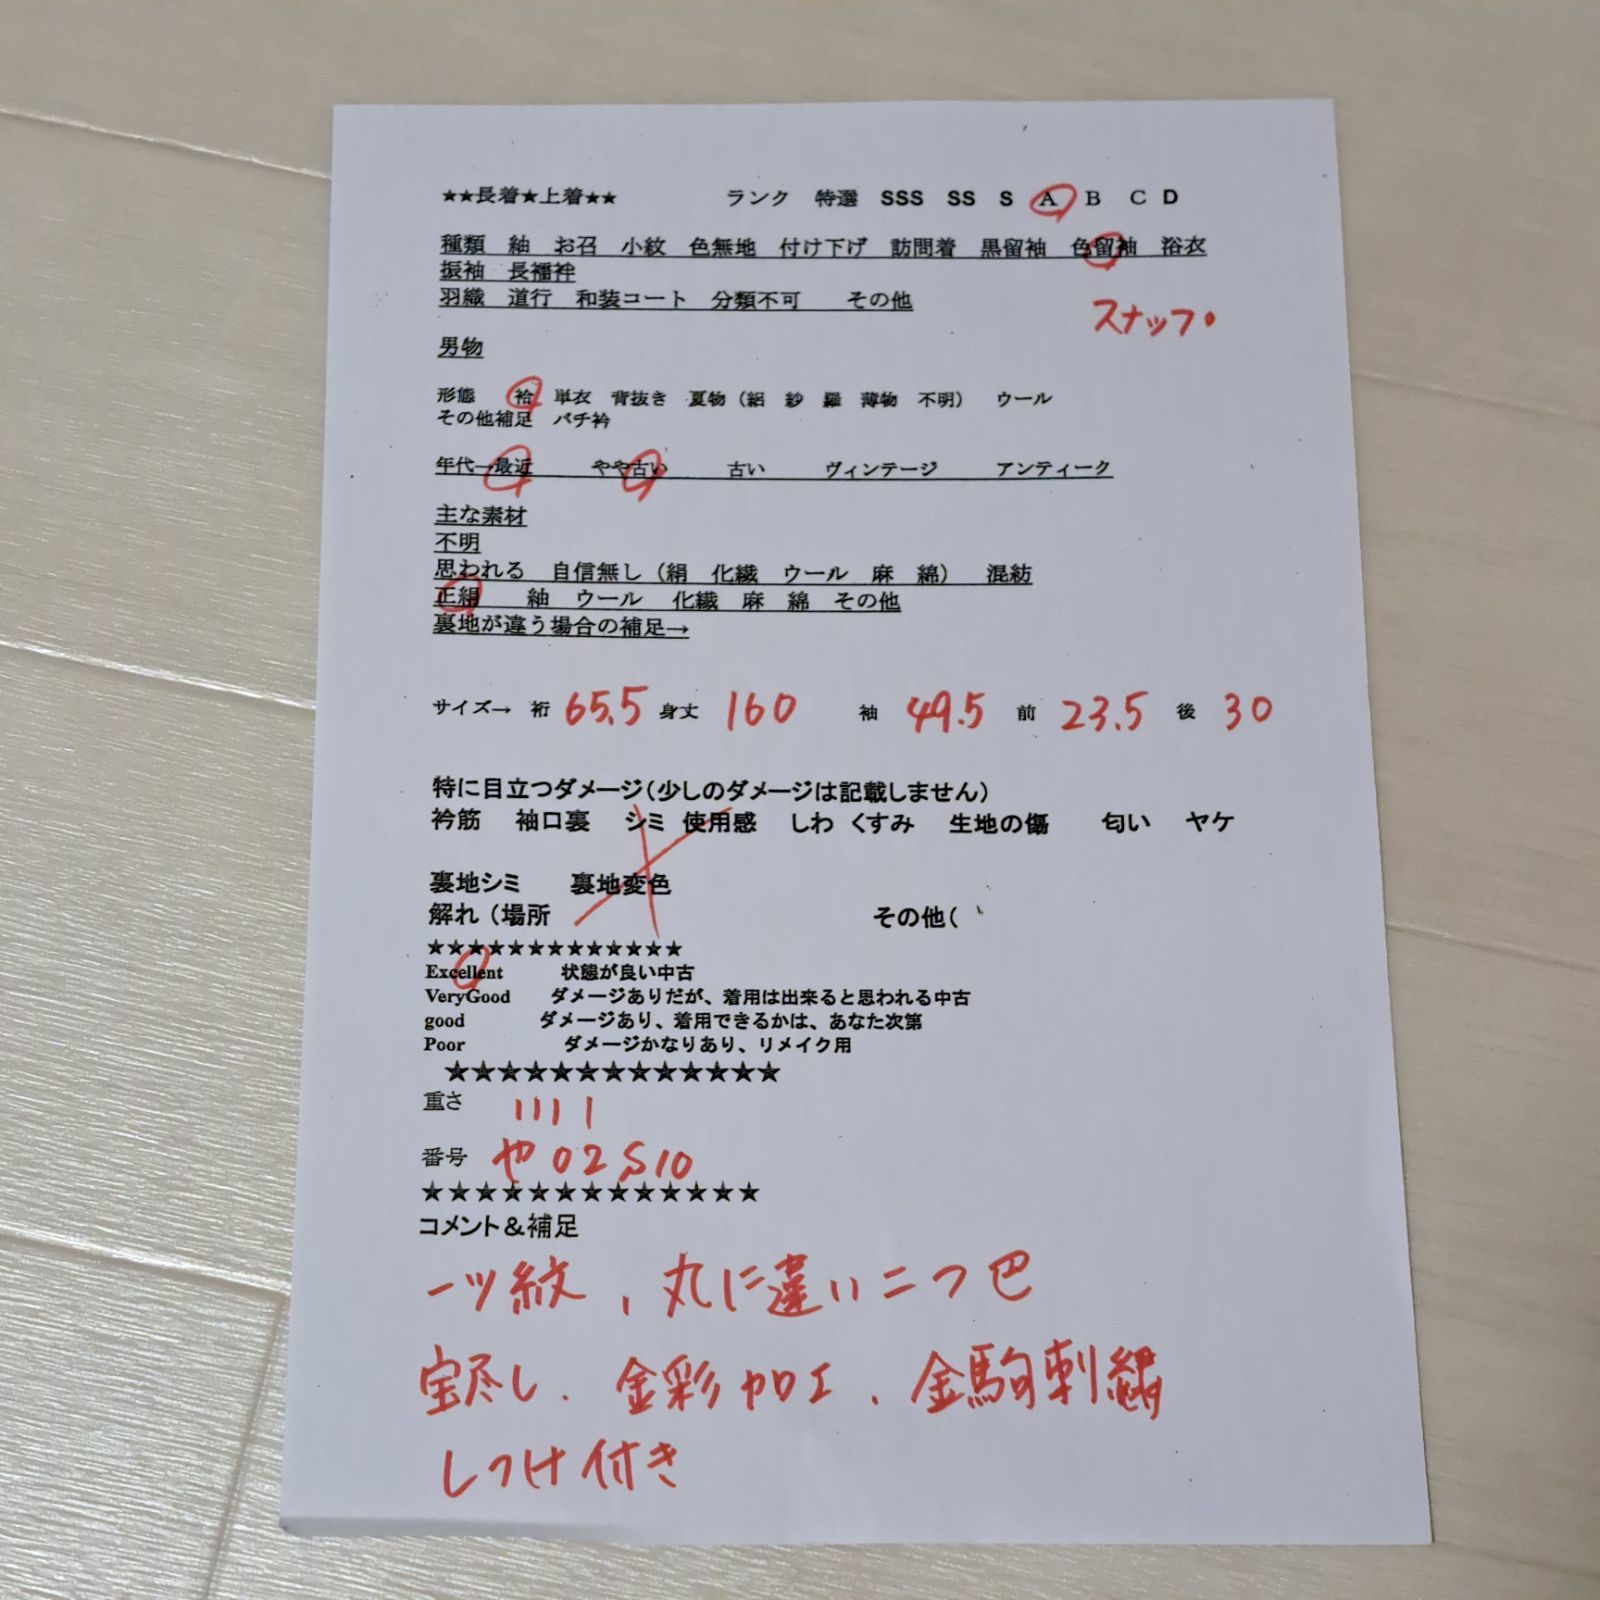 ★★長着★上着★★ ランク 特選 SSS SS S A B C D
種類 紬 お召 小紋 色無地 付け下げ 訪問着 黒留袖 色留袖 浴衣
振袖 長襦袢
羽織 道行 和装コート 分類不可 その他
スナップ
男物
形態 袷 単衣 背抜き 夏物（絽 紗 羅 薄物 不明） ウール
その他補足 バチ衿
年代→最近 やや古い 古い ヴィンテージ アンティーク
主な素材
不明
思われる 自信無し（絹 化繊 ウール 麻 綿） 混紡
正絹 紬 ウール 化繊 麻 綿 その他
裏地が違う場合の補足→
サイズ→ 裄 65.5 身丈 160 袖 49.5 前 23.5 後 30
特に目立つダメージ（少しのダメージは記載しません）
衿筋 袖口裏 シミ 使用感 しわ くすみ 生地の傷 匂い ヤケ
裏地シミ 裏地変色
解れ（場所 その他（
★★★★★★★★★★★★★
Excellent 状態が良い中古
VeryGood ダメージありだが、着用は出来ると思われる中古
good ダメージあり、着用できるかは、あなた次第
Poor ダメージかなりあり、リメイク用
★★★★★★★★★★★★★
重さ 1111
番号 や02S10
★★★★★★★★★★★★★
コメント＆補足
一ツ紋、丸に違い二つ巴
宝尽し、金彩加工、金駒刺繍
しつけ付き